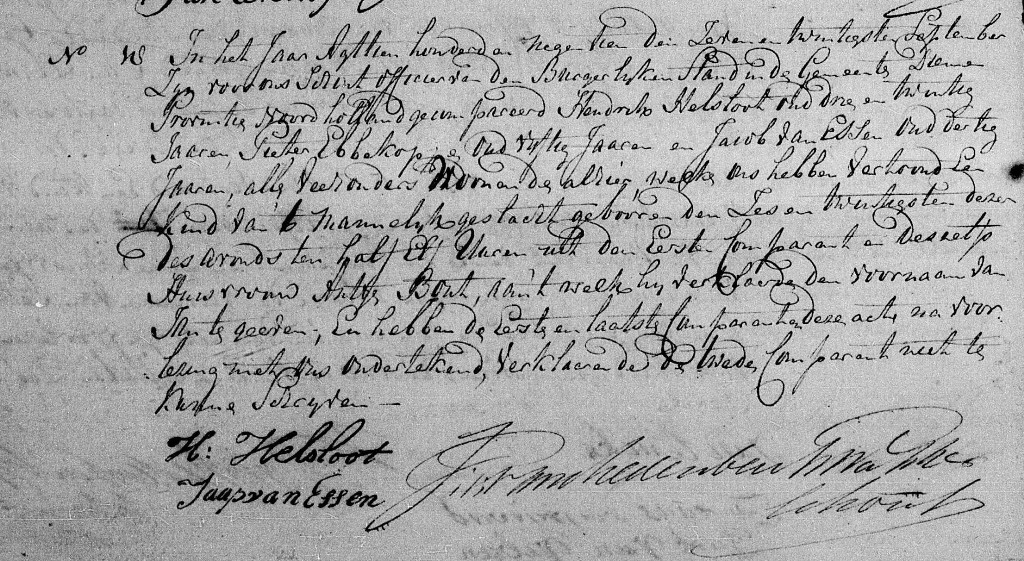 No 18 In het Jaar Agttien honderd en negentien den Zeven en twintigsten September
Zyn voor ons Schout officier van den Burgerlyken Stand in de Gemeente Diemen
Provintie Noord holland gecompareerd Hendrik Helsloot oud drie en twintig
Jaaren, Pieter Ebbekop, oud vyftig Jaaren en Jacob van Essen oud dertig
Jaaren, alle veezonders Woonende alhier, welke ons hebben vertoond Een
kind van 't mannelyk geslacht gebooren den Zes en twintigsten dezer
des avonds ten half Elf Uuren uit den Eersten Comparant en deszelfs
Huisvrouw Antje Bont, aan 't welk hy verklaarde den voornaam van
Jan te geeven, En hebben de Eerste en laatste Comparanten deze acte na voor
lezing met ons ondertekend, verklaarende de twede Comparant niet te
kunne Schryven —
H: Helsloot
Jaap van Essen
Schout